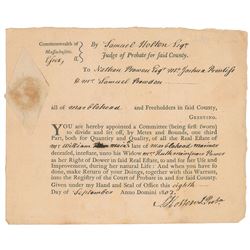 Commonwealth of
Massachusetts.
Essex, ss.
By Samuel Holten Esqr
Judge of Probate for said County.
To Nathan Bowen Esqr Mr Joshua Prentiss
& Mr Samuel Bowden
all of Marblehead and Freeholders in said County,
GREETING.
YOU are hereby appointed a Committee (being first sworn)
to divide and set off, by Metes and Bounds, one third
Part, both for Quantity and Quality, of all the Real Estate of
Mr William late of Marblehead mariner
deceased, to his Widow Mrs Ruth as
her Right of Dower in said Real Estate, and to for her Use and
Improvement, during her natural Life; and when you have so
done, make Return of your Doings, together with this Warrant,
into the Registry of the Court of Probate in and for said County.
Given under my Hand and Seal of Office this eighth
Day of September Anno Domini
S Holten J Prob